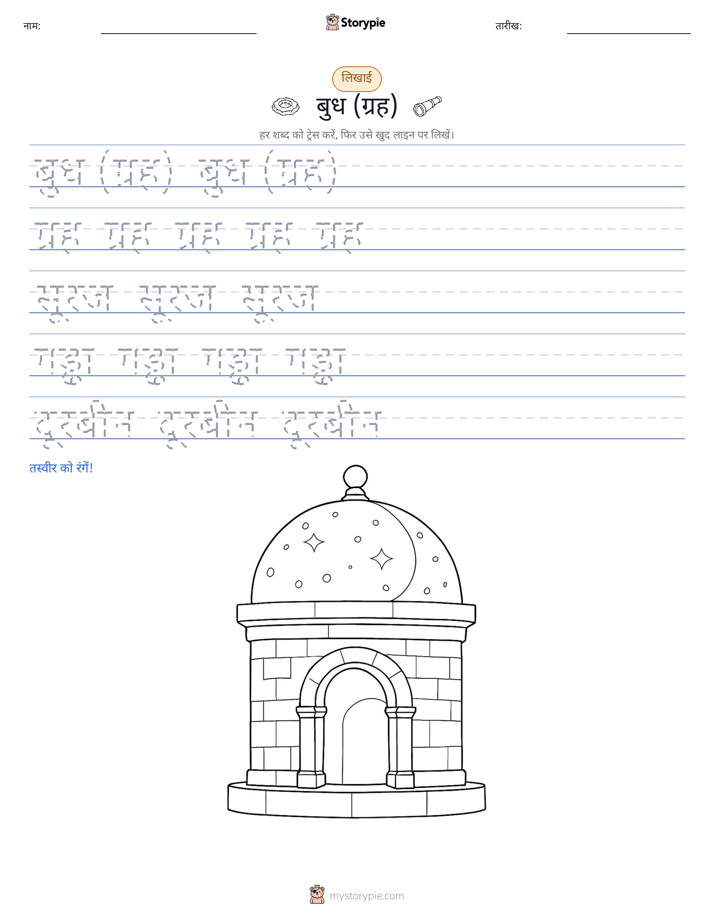 नाम:
Storypie
तारीख:
लिखाई
बुध (ग्रह)
हर शब्द को ट्रेस करें, फिर उसे खुद लाइन पर लिखें।
बुध (ग्रह) बुध (ग्रह)
ग्रह ग्रह ग्रह ग्रह ग्रह
सूरज सूरज सूरज
गड्ढा गड्ढा गड्ढा गड्ढा
दूरबीन दूरबीन दूरबीन
तस्वीर को रंगें!
mystorypie.com